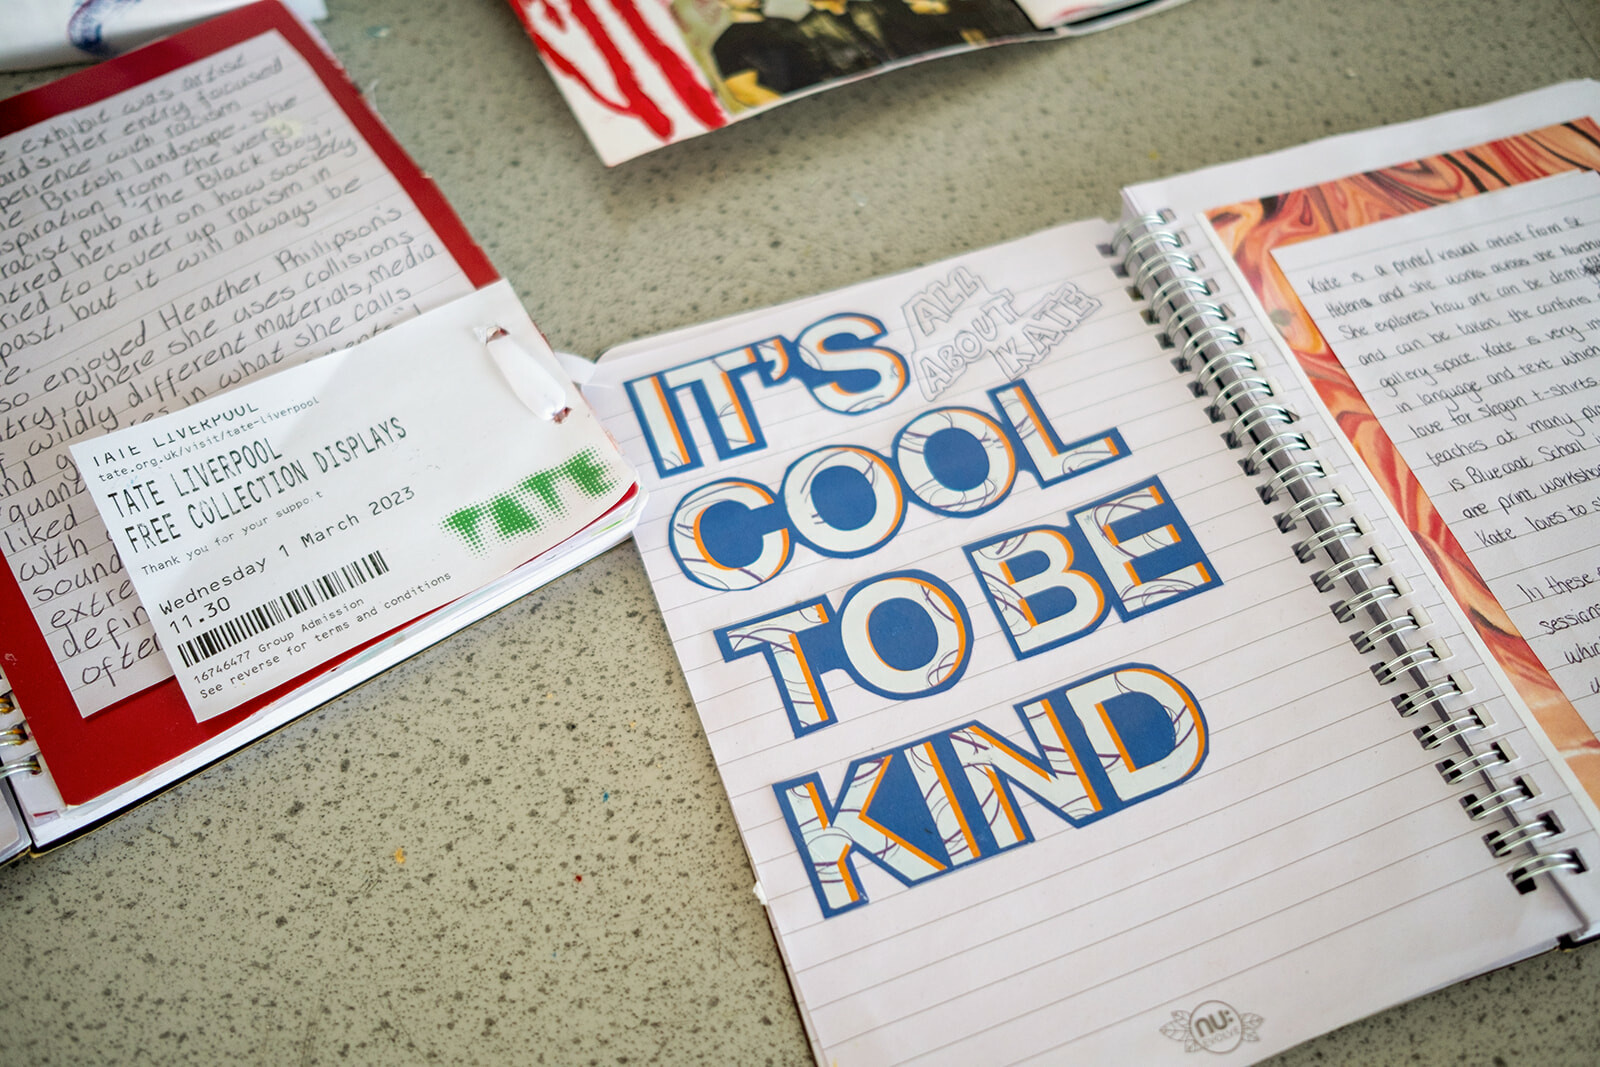 exhibit was artist
Her entry focused
perience with racism
British landscape. She
spiration from the very
racist pub 'The Black Boy.
ntred her art on how society
ried to cover up racism in
past, but it will always be
enjoyed Heather Philipson's
ntry, where she uses collisions
f wildly different materials, media
and in what she calls
"quant
liked
with
sound
extre
defin
often
TATE LIVERPOOL
tate.org.uk/visit/tate-liverpool
TATE LIVERPOOL
FREE COLLECTION DISPLAYS
Thank you for your support
Wednesday 1 March 2023
11.30
16746477 Group Admission
See reverse for terms and conditions
TATE
IT'S
COOL
TO BE
KIND
ALL
ABOUT
KATE
nu:
EVOLVE
Kate is a print/visual artist from St
Helens and she works across the North
She explores how art can be demo
and can be taken the confines
gallery space. Kate is very in
in language and text which
love for slogan t-shirts.
teaches at many pla
is Bluecoat School
are print workshop
Kate loves to s
In these
sessions
which